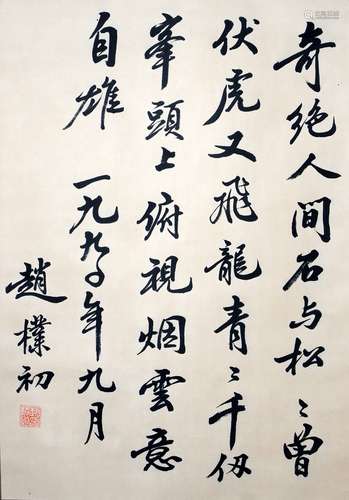 奇绝人间石与松〻曾
伏虎又飛龍青〻千仞
峯頭上俯視烟雲意
自雄 一九九〇年九月
趙樸初